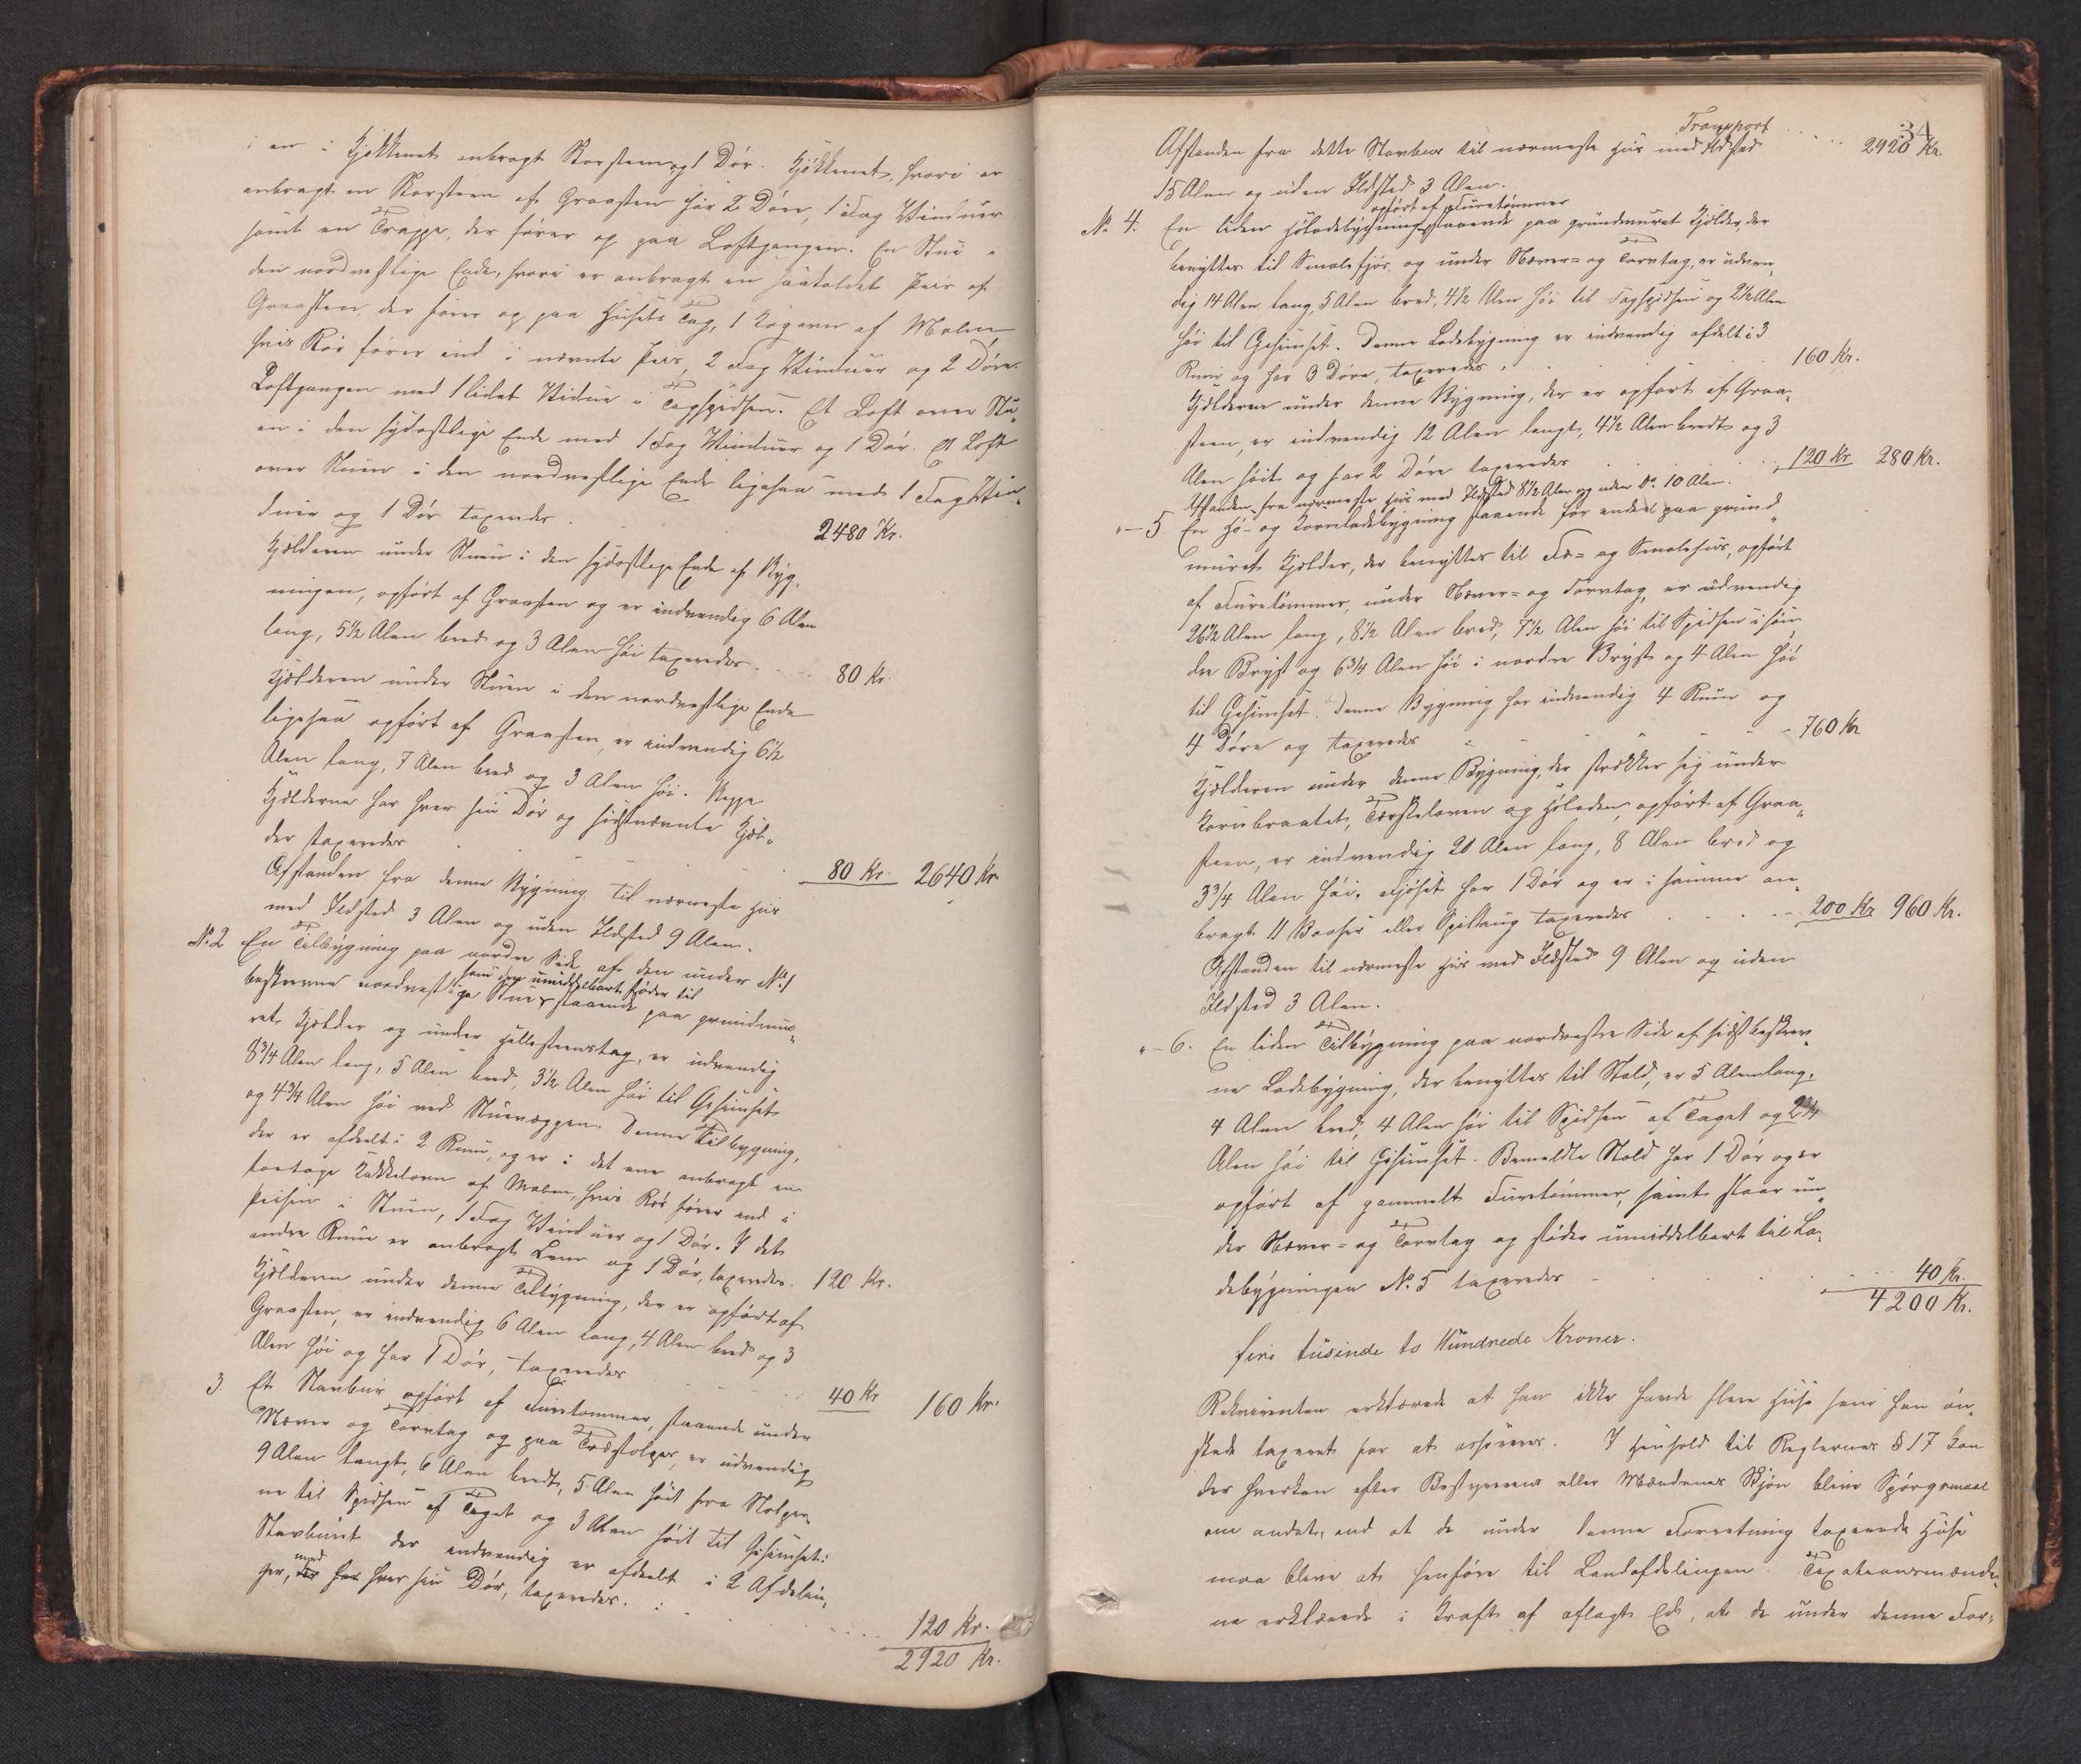 i en i Kjøkkenet anbragt Skorsteen og 1 Dør. Kjøkkenet, hvori er
anbragt en Skorsteen af Graasten har 2 Døre, 1 Fag Vinduer
samt en Trappe, der fører op paa Loftgangen. En Stue i
den nordvestlige Ende, hvori er anbragt en saakaldet Peis af
Graasten, der fører op paa Husets Tag, 1 Kogovn af Malm,
hvis Rør fører ind i nævnte Peis, 2 Fag Vinduer og 2 Døre.
Loftgangen med 1 lidet Vidue i Tagspidsen. Et Loft over Stu„
en i den sydøstlige Ende med 1 Fag Vinduer og 1 Dør. Et Loft
over Stuen i den nordvestlige Ende ligesaa med 1 Fag Vin„
duer og 1 Dør taxeredes . 2480 Kr.
Kjælderen under Stuen i den sydøstlige Ende af Byg„
ningen, opført af Graasten og er indvendig 6 Alen
lang, 5½ Alen bred og 3 Alen høi taxeredes . . . 80 Kr.
Kjælderen under Stuen i den nordvestlige Ende
ligesaa opført af Graasten, er indvendig 6½
Alen lang, 7 Alen bred og 3 Alen høi. Begge
Kjælderne har hver sin Dør og sidstnævnte Kjæl„
der taxeredes . . . 80 Kr. 2640 Kr.
Afstanden fra denne Bygning til nærmeste Hus
med Ildsted 3 Alen og uden Ildsted 9 Alen.
No. 2 En Tilbygning paa nordre Side af den under No. 1
beskrevne nordvestlige Stue, som umiddelbart støder til staaende paa grundmu„
ret Kjælder og under Hellesteenstag, er udvendig
8¾ Alen lang, 5 Alen bred, 3½ Alen høi til Gesimset
og 4¾ Alen høi ved Stuevæggen. Denne Tilbygning,
der er afdeelt i 2 Rum, og er i det ene anbragt en
toetage Kakkelovn af Malm, hvis Rør fører ind i
Peisen i Stuen, 1 Fag Vinduer og 1 Dør. I det
andre Rum er anbragt Lem og 1 Dør, taxeredes. 120 Kr.
Kjælderen under denne Tilbygning, der er opført af
Graasten, er indvendig 6 Alen lang, 4 Alen bred og 3
Alen høi og har 1 Dør, taxeredes . . . 40 Kr 160 Kr.
3. Et Stavbuur opført af Furetømmer, staaende under
Næver og Torvtag og paa Træstolper, er udvendig
9 Alen langt, 6 Alen bredt, 5 Alen høit fra Stolper„
ne til Spidsen af Taget og 3 Alen høit til Gesimset.
Stavburet der indvendig er afdeelt i 2 Afdelin„
ger, med hver sin Dør, taxeredes. . . . 120 Kr.
2920 Kr.
34
Transport . . . 2920 Kr.
Afstanden fra dette Stavbur til nærmeste Hus med Ildsted
15 Alen og uden Ildsted 3 Alen.
No. 4. En liden Høladebygning opført af Furetømmer staaende paa grundmuret Kjælder, der
benyttes til Smalefjøs, og under Næver= og Torvtag, er udven„
dig 14 Alen lang, 5 Alen bred, 4½ Alen høi til Tagspidsen og 2½ Alen
høi til Gesimset. Denne Ladebygning er indvendig afdelt i 3
Rum og har 3 Døre, taxeredes . . 160 Kr.
Kjælderen under denne Bygning, der er opført af Graa„
steen, er indvendig 12 Alen langt, 4½ Alen bredt og 3
Alen høit og har 2 Døre taxeredes . . . 120 Kr 280 Kr.
Afstanden fra nærmeste Hus med Ildsted 8½ Alen og uden do. 10 Alen.
" – 5 En Hø- og Kornladebygning staaende for endeel paa grund„
muret Kjælder, der benyttes til Fæ= og Smalefjøs, opført
af Furetømmer, under Næver= og Torvtag, er udvendig
26½ Alen lang, 8½ Alen bred, 7½ Alen høi til Spidsen i søn„
dre Bryst og 6¾ Alen høi i nordre Bryst og 4 Alen høi
til Gesimset. Denne Bygning har indvendig 4 Rum og
4 Døre og taxeredes . . . 760 Kr
Kjælderen under denne Bygning, der strækker sig under
Kornbraatet, Tærskeloven og Høladen, opført af Graa„
steen, er indvendig 20 Alen lang, 8 Alen bred og
3¾ Alen høi. Fjøset har 1 Dør og er i samme an„
bragt 11 Baaser eller Spiltaug taxeredes . . . 200 Kr 960 Kr.
Afstanden til nærmeste Hus med Ildsted 9 Alen og uden
Ildsted 3 Alen.
" – 6. En liden Tilbygning paa nordvestre Side af sidst beskrev„
ne Ladebygning, der benyttes til Stald, er 5 Alen lang,
4 Alen bred, 4 Alen høi til Spidsen af Taget og 2¾
Alen høi til Gesimset. Bemeldte Stald har 1 Dør og er
opført af gammelt Furetømmer, samt staar un„
der Næver= og Torvtag og støder umiddelbart til La„
debygningen No. 5 taxeredes . . . 40 Kr.
4200 Kr.
fire tusinde to Hundrede Kroner.
Rekvirenten erklærede at han ikke havde flere Huse som han øn„
skede taxeret for at assureres. I Henhold til Reglernes § 17 kan
der hverken efter Bestyrerens eller Mændenes Skjøn blive Spørgsmaal
om andet, end at de under denne Forretning taxerede Huse
maa blive at henføre til Landafdelingen. Taxationsmænde„
ne erklærede i Kraft af aflagt Ed, at de under denne For„